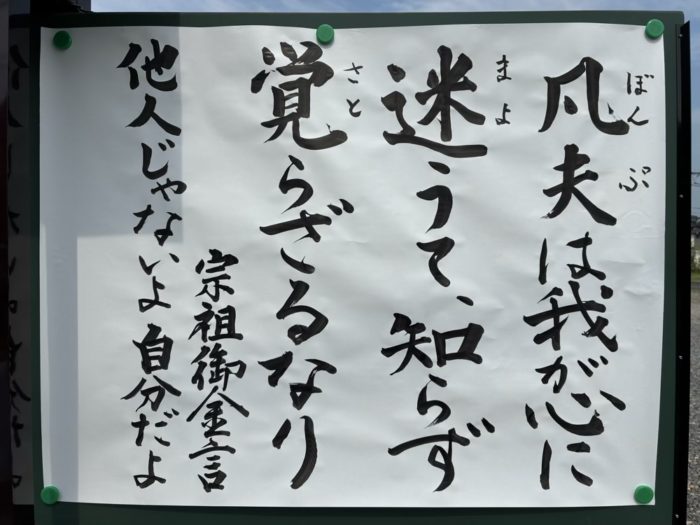 凡夫は我が心に
ぼんぷ
迷うて、知らず
まよ
覚らざるなり
さと
宗祖御金言
他人じゃないよ自分だよ